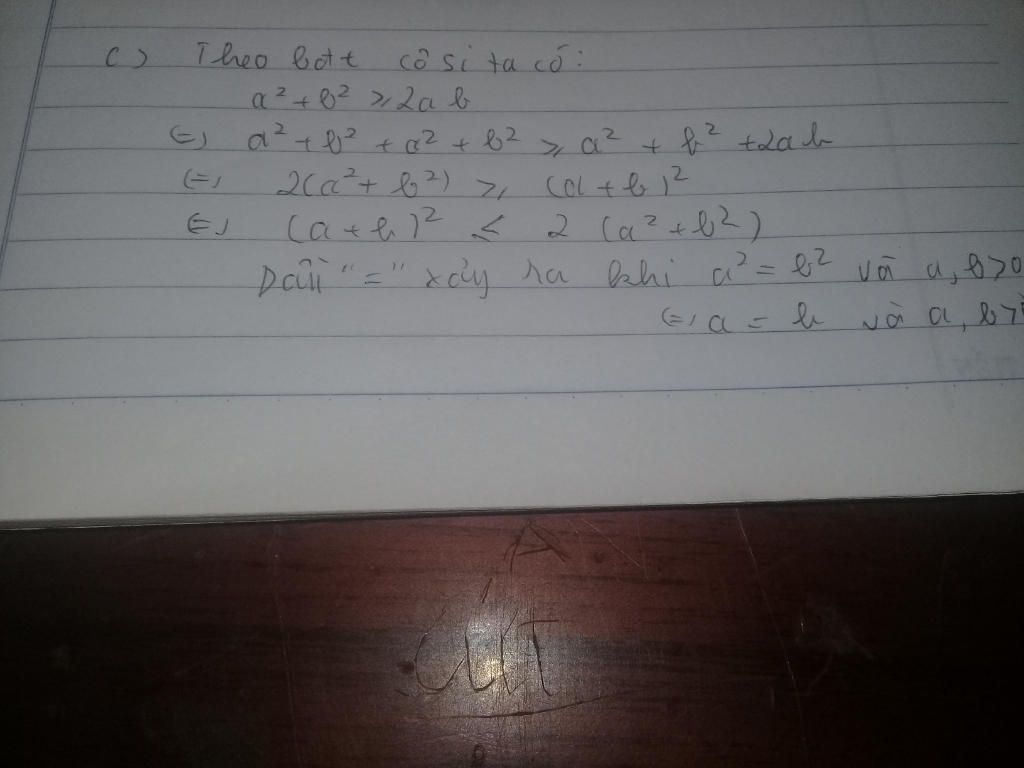 c) Theo bđt cô si ta có:
a² + b² ≥ 2ab
(=) a² + b² + a² + b² ≥ a² + b² + 2ab
(=) 2(a² + b²) ≥ (a + b)²
(=) (a + b)² ≤ 2 (a² + b²)
Dấu "=" xảy ra khi a² = b² và a, b > 0
(=) a = b và a, b >
A